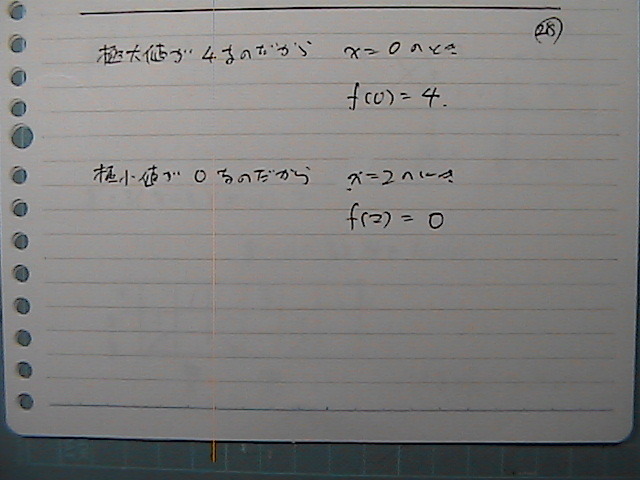 (28)
極大値が4なのだから x=0のとき
f(0)=4.
極小値が0なのだから x=2のとき
f(2)=0